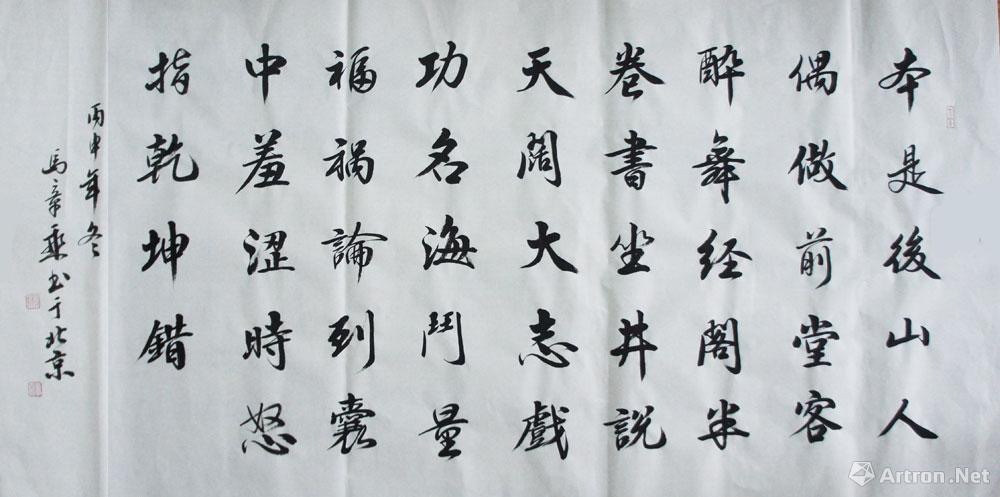 本是後山人
偶做前堂客
醉舞经閣半
卷書坐井説
天闊大志戲
功名海鬥量
福禍論到囊
中羞澀時怒
指乾坤錯
丙申年冬
馬章乘书于北京
Artron.Net